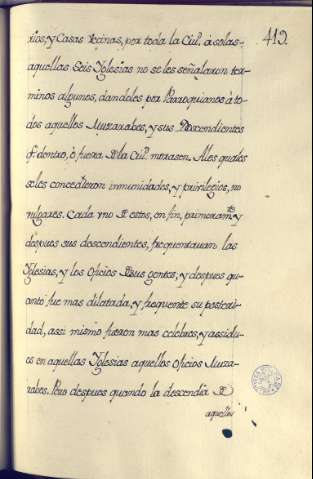 419
rios, y Casas Vecinas, por toda la Ciud. á solas
aquellas Seis Yglesias no se les señalaron ter-
minos algunos, dandoles por Parroquianos à to-
dos aquellos Muzarabes, y sus Descendientes
q̃ dentro, ò fuera de la Ciud. morasen. A los quales
se les concedieron inmunidades, y privilegios, no
vulgares. Cada vno de estos, en fin, primeramte. y
despues sus descendientes, frequentavan las
Yglesias, y los Oficios de sus gentes, y despues qu-
anto fue mas dilatada, y frequente su posteri-
dad, assi mismo fueron mas celebres, y assidu-
os en aquellas Yglesias aquellos Oficios Muza-
rabes. Pero despues quando la descendia de
aquellos